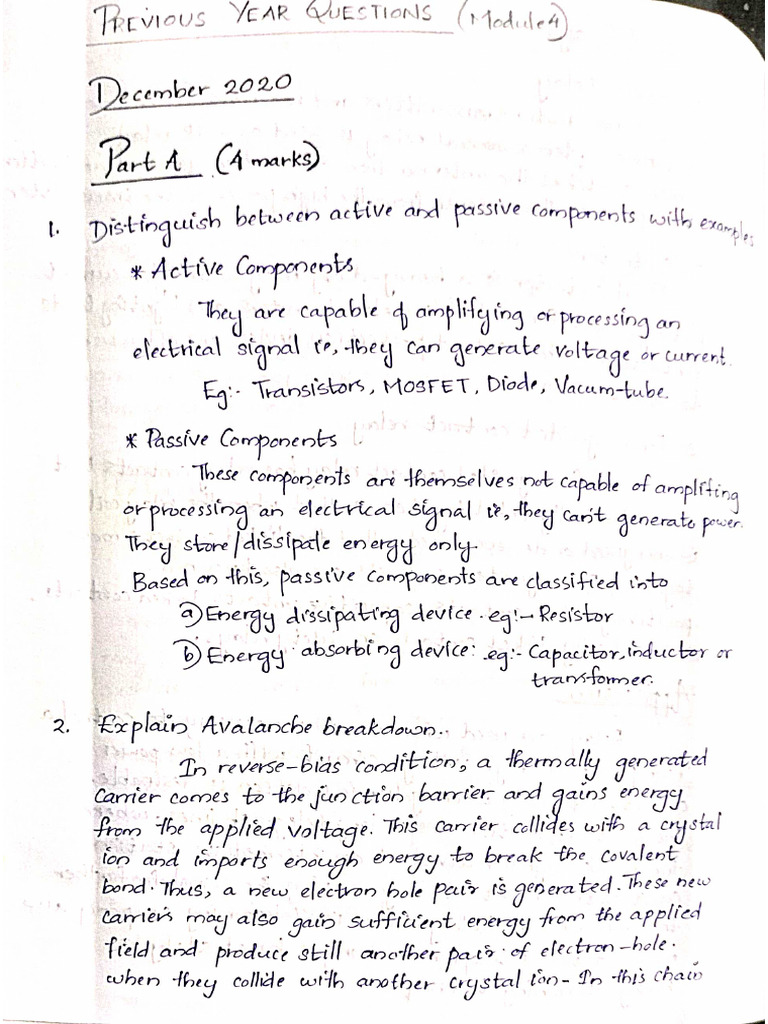 PREVIOUS YEAR QUESTIONS (Module 4)
December 2020
Part A (4 marks)
1. Distinguish between active and passive components with examples
* Active Components
They are capable of amplifying or processing an
electrical signal ie, they can generate voltage or current.
Eg:- Transistors, MOSFET, Diode, Vacum-tube.
* Passive Components
These components are themselves not capable of amplifing
or processing an electrical signal ie, they can't generate power.
They store/dissipate energy only.
Based on this, passive components are classified into
a) Energy dissipating device. eg:- Resistor
b) Energy absorbing device: eg:- Capacitor, inductor or
transformer.
2. Explain Avalanche breakdown.
In reverse-bias condition, a thermally generated
carrier comes to the junction barrier and gains energy
from the applied voltage. This carrier collides with a crystal
ion and imports enough energy to break the covalent
bond. Thus, a new electron hole pair is generated. These new
carriers may also gain sufficient energy from the applied
field and produce still another pair of electron-hole.
when they collide with another crystal ion- In this chain